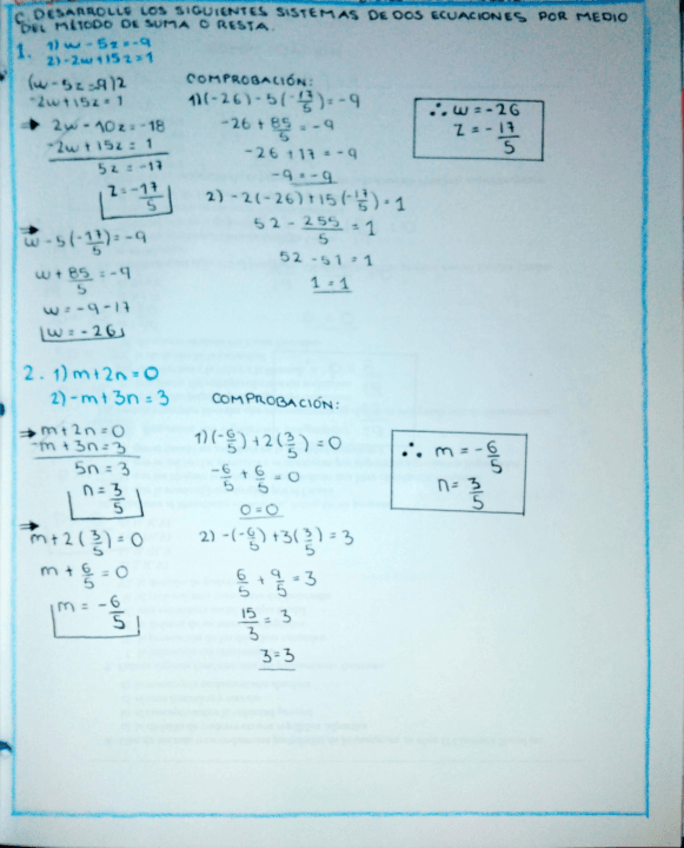 C. DESARROLLE LOS SIGUIENTES SISTEMAS DE DOS ECUACIONES POR MEDIO
DEL MÉTODO DE SUMA O RESTA.
1. 1) w - 5z = -9
2) -2w + 15z = 1
(w - 5z = -9) 2
-2w + 15z = 1
⇒ 2w - 10z = -18
-2w + 15z = 1
5z = -17
z = -17/5
⇒
w - 5(-17/5) = -9
w + 85/5 = -9
w = -9 - 17
w = -26
COMPROBACIÓN:
1) (-26) - 5(-17/5) = -9
-26 + 85/5 = -9
-26 + 17 = -9
-9 = -9
2) -2(-26) + 15(-17/5) = 1
52 - 255/5 = 1
52 - 51 = 1
1 = 1
∴ w = -26
z = -17/5
2. 1) m + 2n = 0
2) -m + 3n = 3
⇒ m + 2n = 0
-m + 3n = 3
5n = 3
n = 3/5
⇒
m + 2(3/5) = 0
m + 6/5 = 0
m = -6/5
COMPROBACIÓN:
1) (-6/5) + 2(3/5) = 0
-6/5 + 6/5 = 0
0 = 0
2) -(-6/5) + 3(3/5) = 3
6/5 + 9/5 = 3
15/3 = 3
3 = 3
∴ m = -6/5
n = 3/5